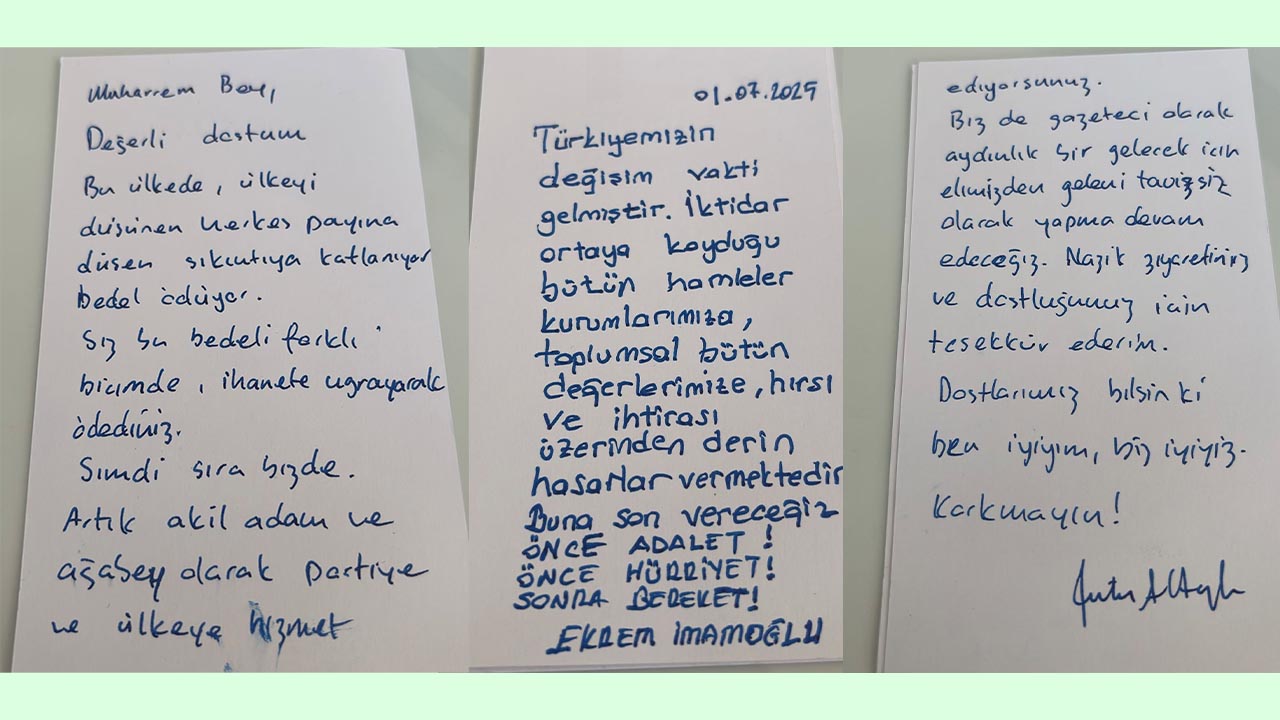 Muharrem Bey,
Değerli dostum
Bu ülkede, ülkeyi
düşünen herkes payına
düşen sıkıntıya katlanıyor
bedel ödüyor.
Siz bu bedeli farklı
biçimde, ihanete uğrayarak
ödediniz.
Şimdi sıra bizde.
Artık akil adam ve
ağabey olarak partiye
ve ülkeye hizmet
01.07.2025
Türkiyemizin
değişim vakti
gelmiştir. İktidar
ortaya koyduğu
bütün hamleler
kurumlarımıza,
toplumsal bütün
değerlerimize, hırsı
ve ihtirası
üzerinden derin
hasarlar vermektedir
Buna son vereceğiz
ÖNCE ADALET!
ÖNCE HÜRRİYET!
SONRA BEREKET!
EKREM İMAMOĞLU
ediyorsunuz.
Biz de gazeteci olarak
aydınlık bir gelecek için
elimizden geleni tavizsiz
olarak yapma devam
edeceğiz. Nazik ziyaretiniz
ve dostluğunuz için
teşekkür ederim.
Dostlarımız bilsin ki
ben iyiyim, biz iyiyiz.
Korkmayın!